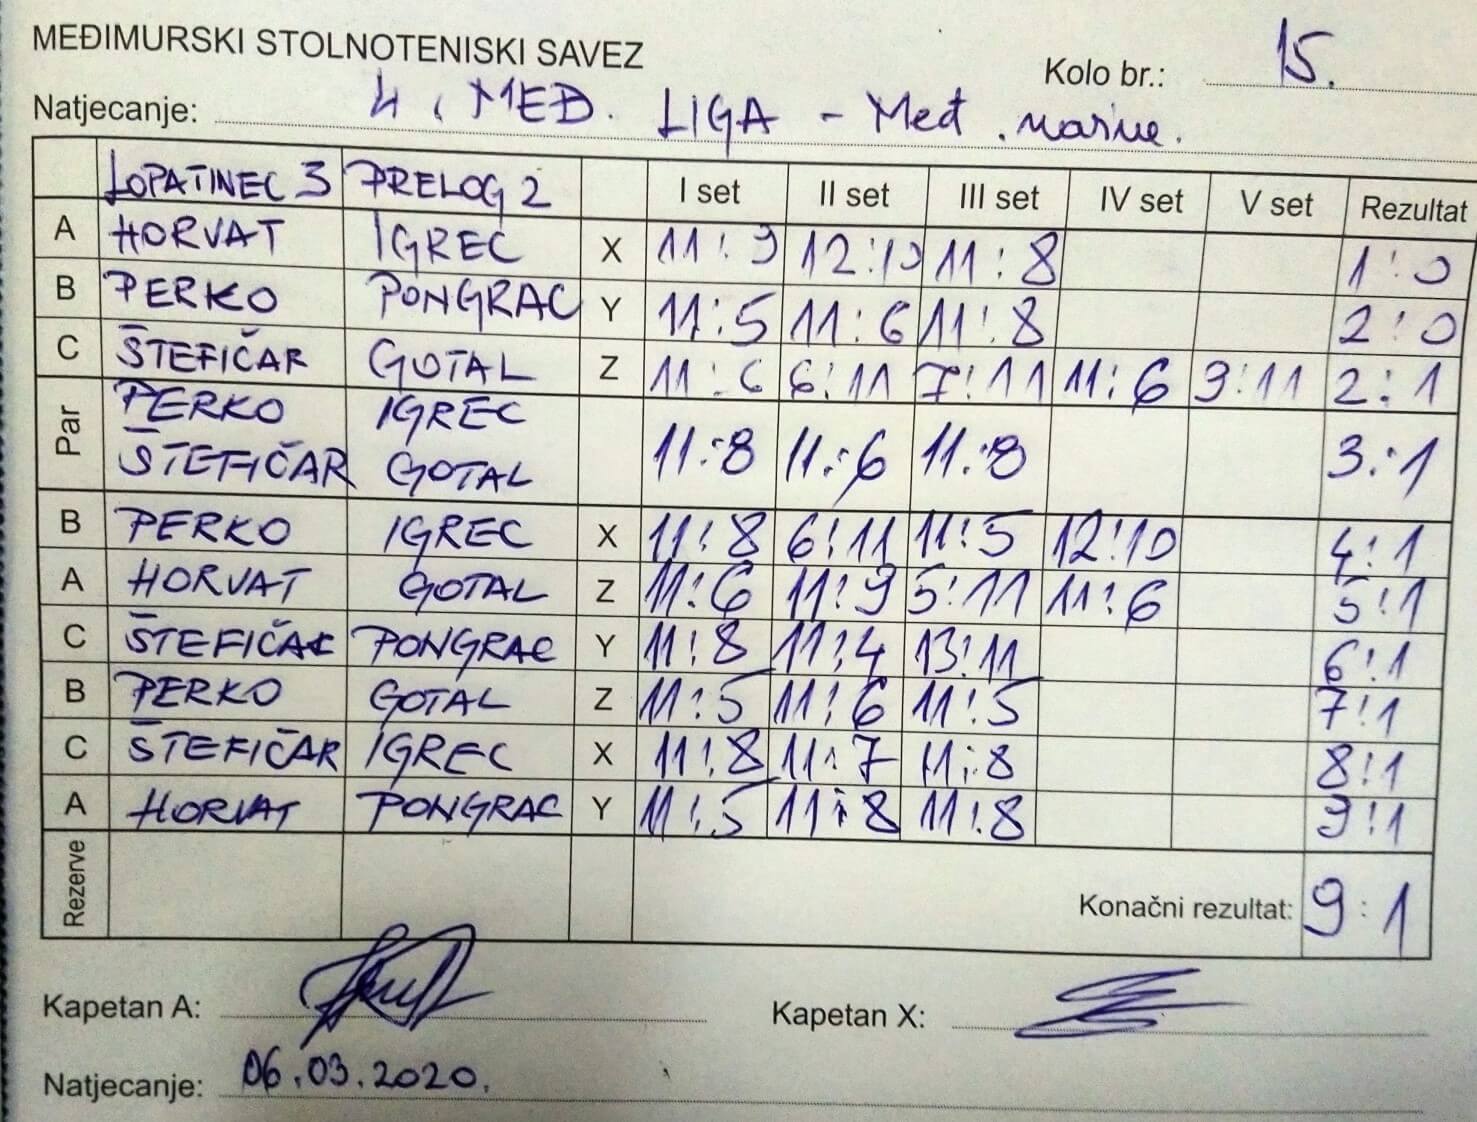 MEĐIMURSKI STOLNOTENISKI SAVEZ
Kolo br.: 15.
Natjecanje: 4. MEĐ. LIGA - Međ.
LOPATINEC 3 PRELOG 2 I set II set III set IV set V set Rezultat
A HORVAT IGREC X 11:9 12:10 11:8 1:0
B PERKO PONGRAC Y 11:5 11:6 11:8 2:0
C ŠTEFIČAR GOTAL Z 11:6 6:11 7:11 11:6 9:11 2:1
Par PERKO IGREC
ŠTEFIČAR GOTAL 11:8 11:6 11:8 3:1
B PERKO IGREC X 11:8 6:11 11:5 12:10 4:1
A HORVAT GOTAL Z 11:6 11:9 5:11 11:6 5:1
C ŠTEFIČAR PONGRAC Y 11:8 11:4 13:11 6:1
B PERKO GOTAL Z 11:5 11:6 11:5 7:1
C ŠTEFIČAR IGREC X 11:8 11:7 11:8 8:1
A HORVAT PONGRAC Y 11:5 11:8 11:8 9:1
Rezerve Konačni rezultat: 9:1
Kapetan A: Kapetan X:
Natjecanje: 06.03.2020.